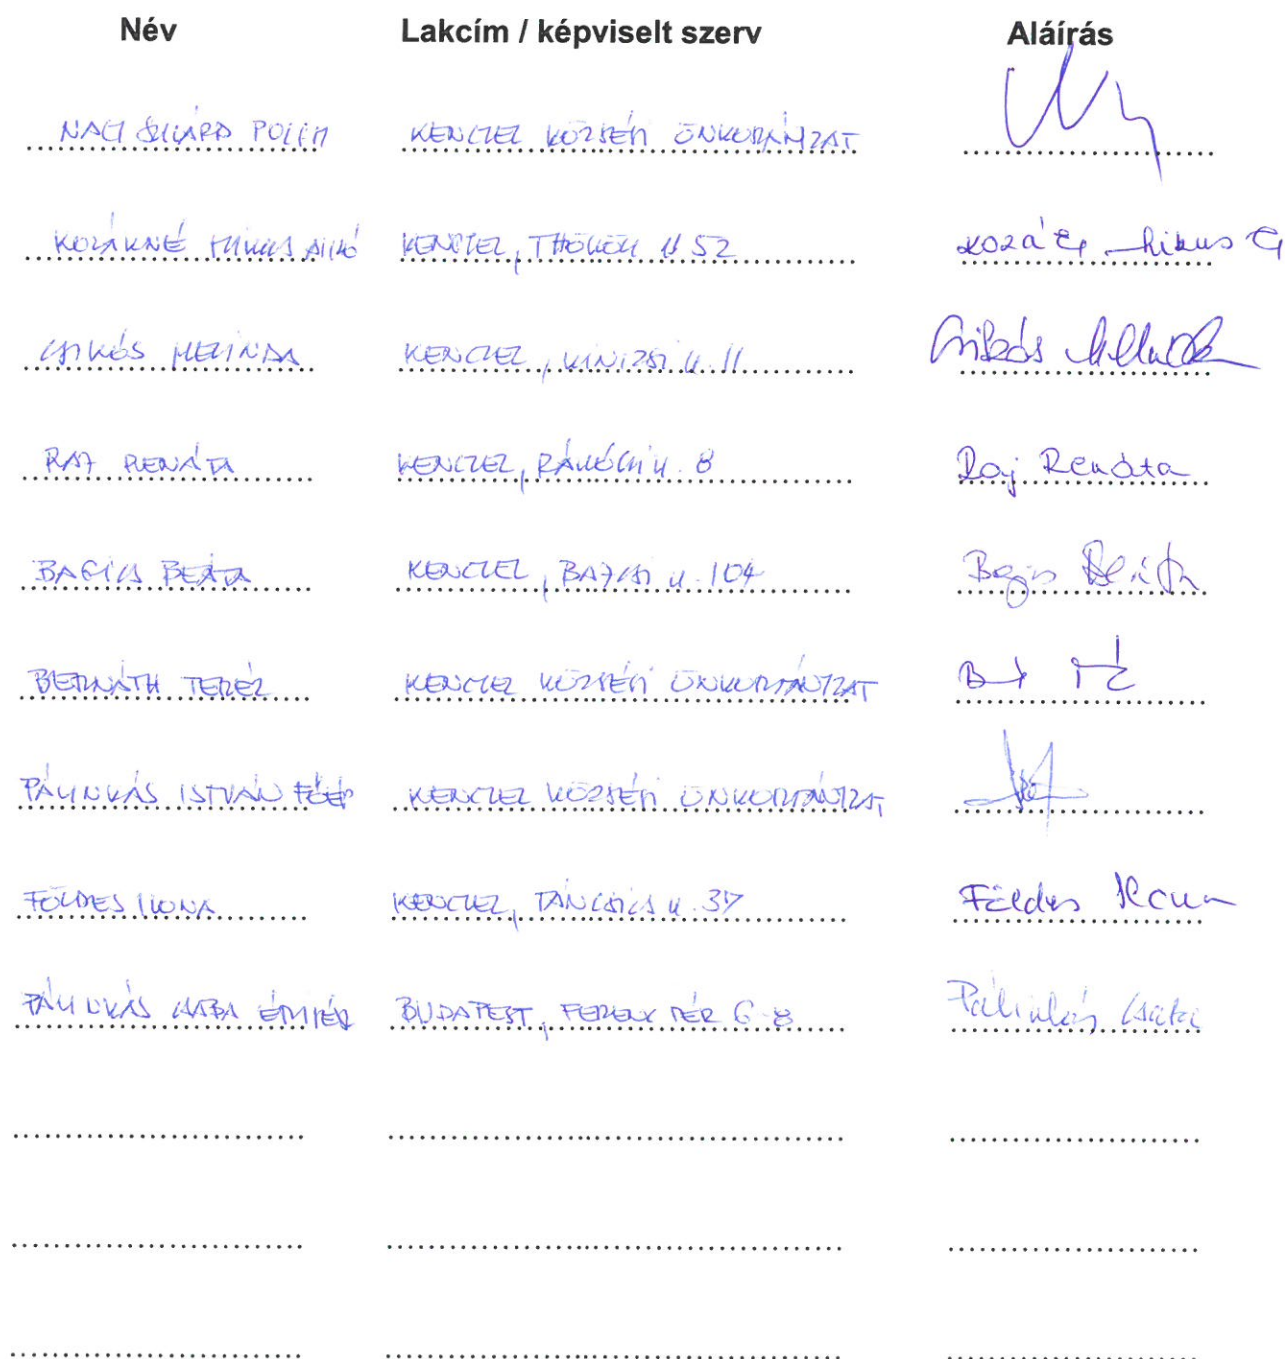 Név Lakcím / képviselt szerv Aláírás
NAGY SZILÁRD POLGM KENCZEL KÖZSÉGI ÖNKORMÁNYZAT
KOZÁKNÉ MIKUS ANIKÓ KENGYEL, THÖKÖLI U 52
CSIKÓS MELINDA KENGYEL, KINIZSI U. 11 Csikós Melinda
RAJ RENÁTA KENGYEL, RÁKÓCZI U. 8 Raj Renáta
BAGICS BEÁTA KENGYEL, BAJCSI U. 104 Beáta
BERNÁTH TERÉZ KENGYEL KÖZSÉGI ÖNKORMÁNYZAT
PÁLINKÁS ISTVÁN FŐÉP KENGYEL KÖZSÉGI ÖNKORMÁNYZAT
FÖLDES ILONA KENGYEL, TÁNCSICS U. 37 Földes Ilona
PÁLINKÁS CSABA ÉPÍTÉSZ BUDAPEST, FERENC TÉR 6-8 Pálinkás Csaba